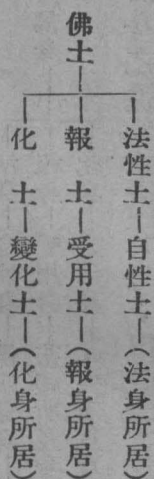 佛土
法性土—自性土—(法身所居)
報土—受用土—(報身所居)
化土—變化土—(化身所居)